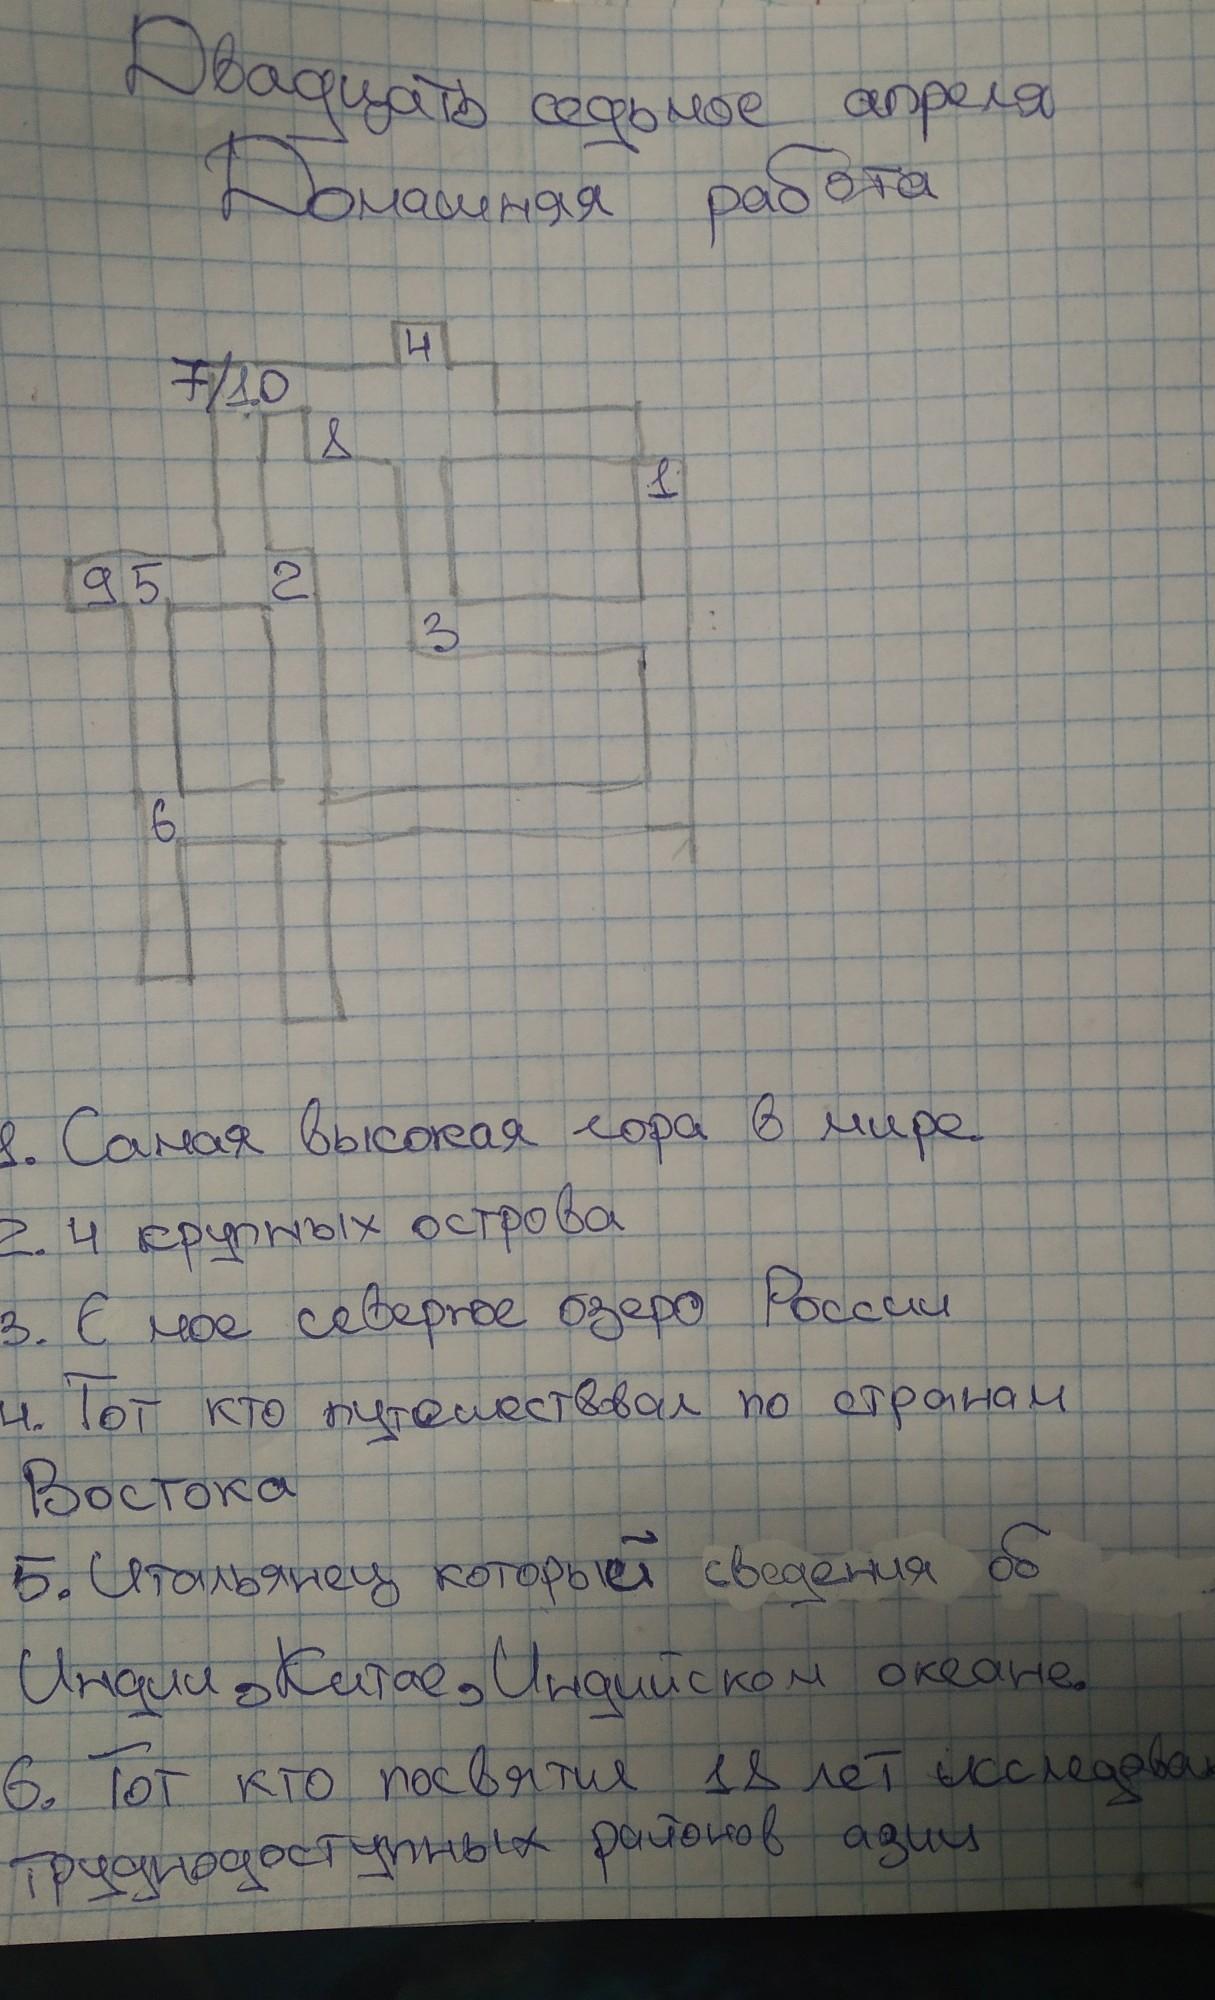 Двадцать седьмое апреля
Домашняя работа
4
7/10
8
1
9 5 2
3
6
1. Самая высокая гора в мире.
2. 4 крупных острова
3. С мое северное озеро России
4. Тот кто путешествовал по странам
Востока
5. Итальянец который сведения об
Индии, Китае, Индийском океане.
6. Тот кто посвятил 18 лет
труднодоступных районов азии